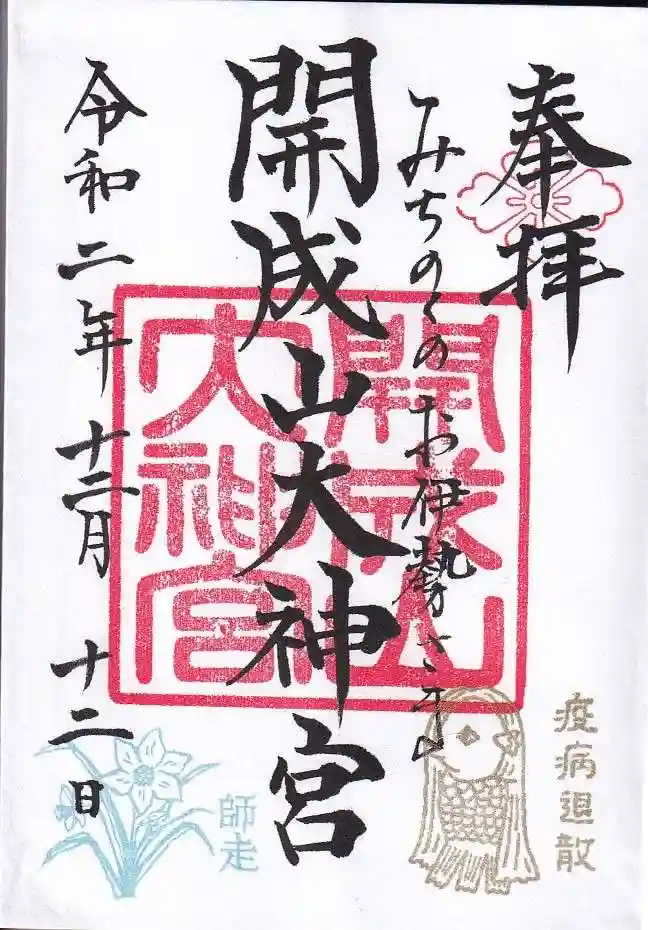 奉拝
みちのくのお伊勢さま
開成山大神宮
開成山
大神宮
令和二年十二月十二日
疫病退散
師走